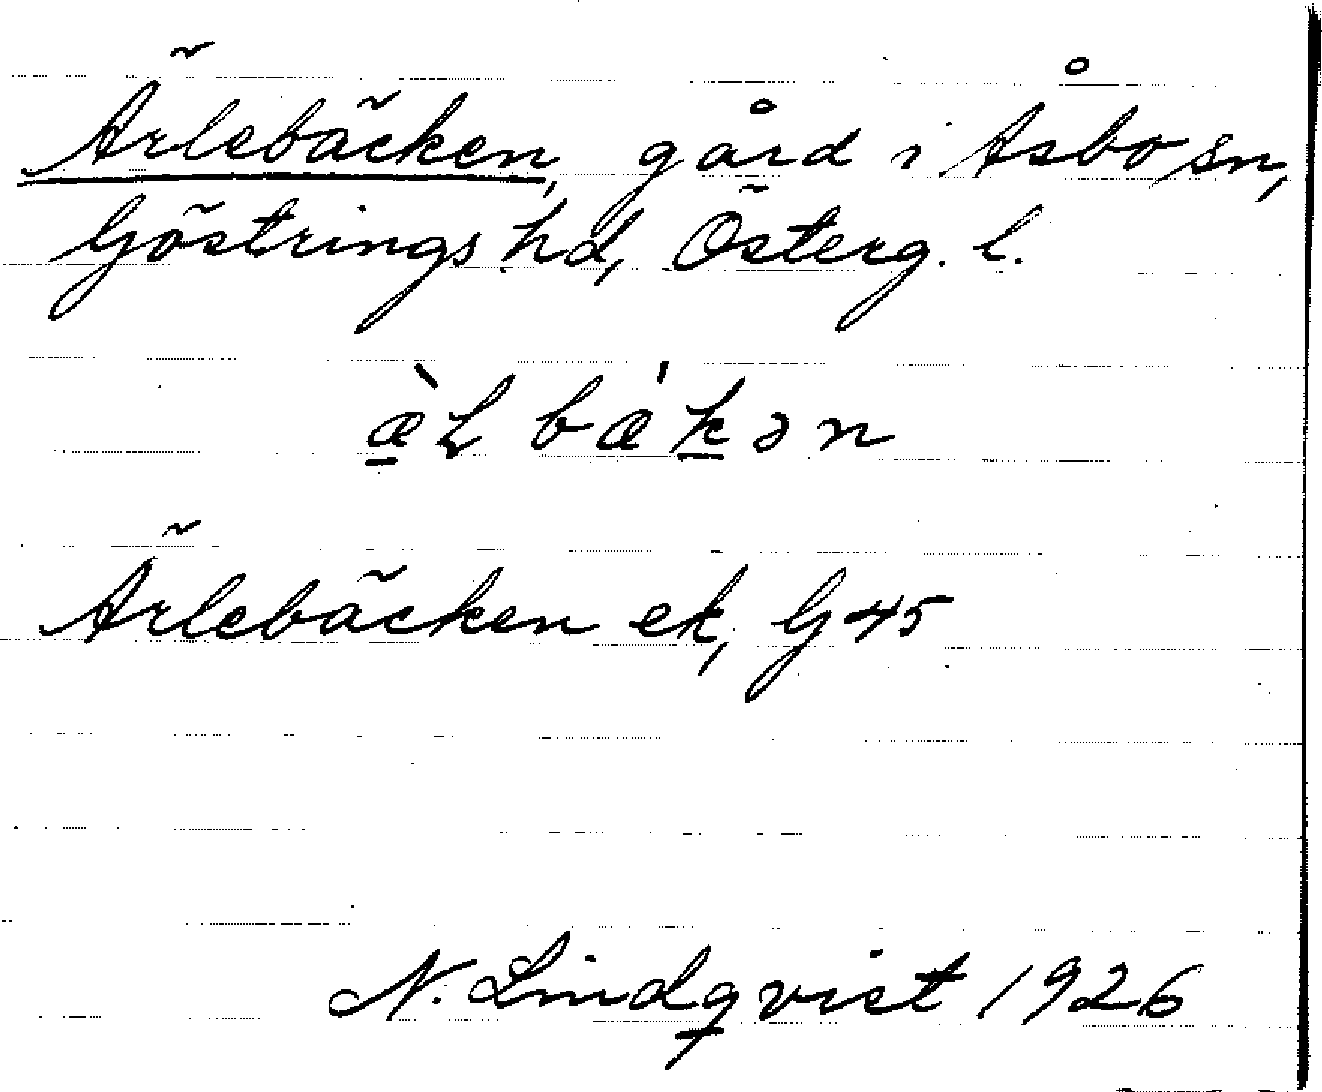 Ärlebäcken, gård i Åsbo sn,
Göstrings hd, Österg. l.
æ̀L bæ'kən
Ärlebäcken ek, G 45
N. Lindqvist 1926